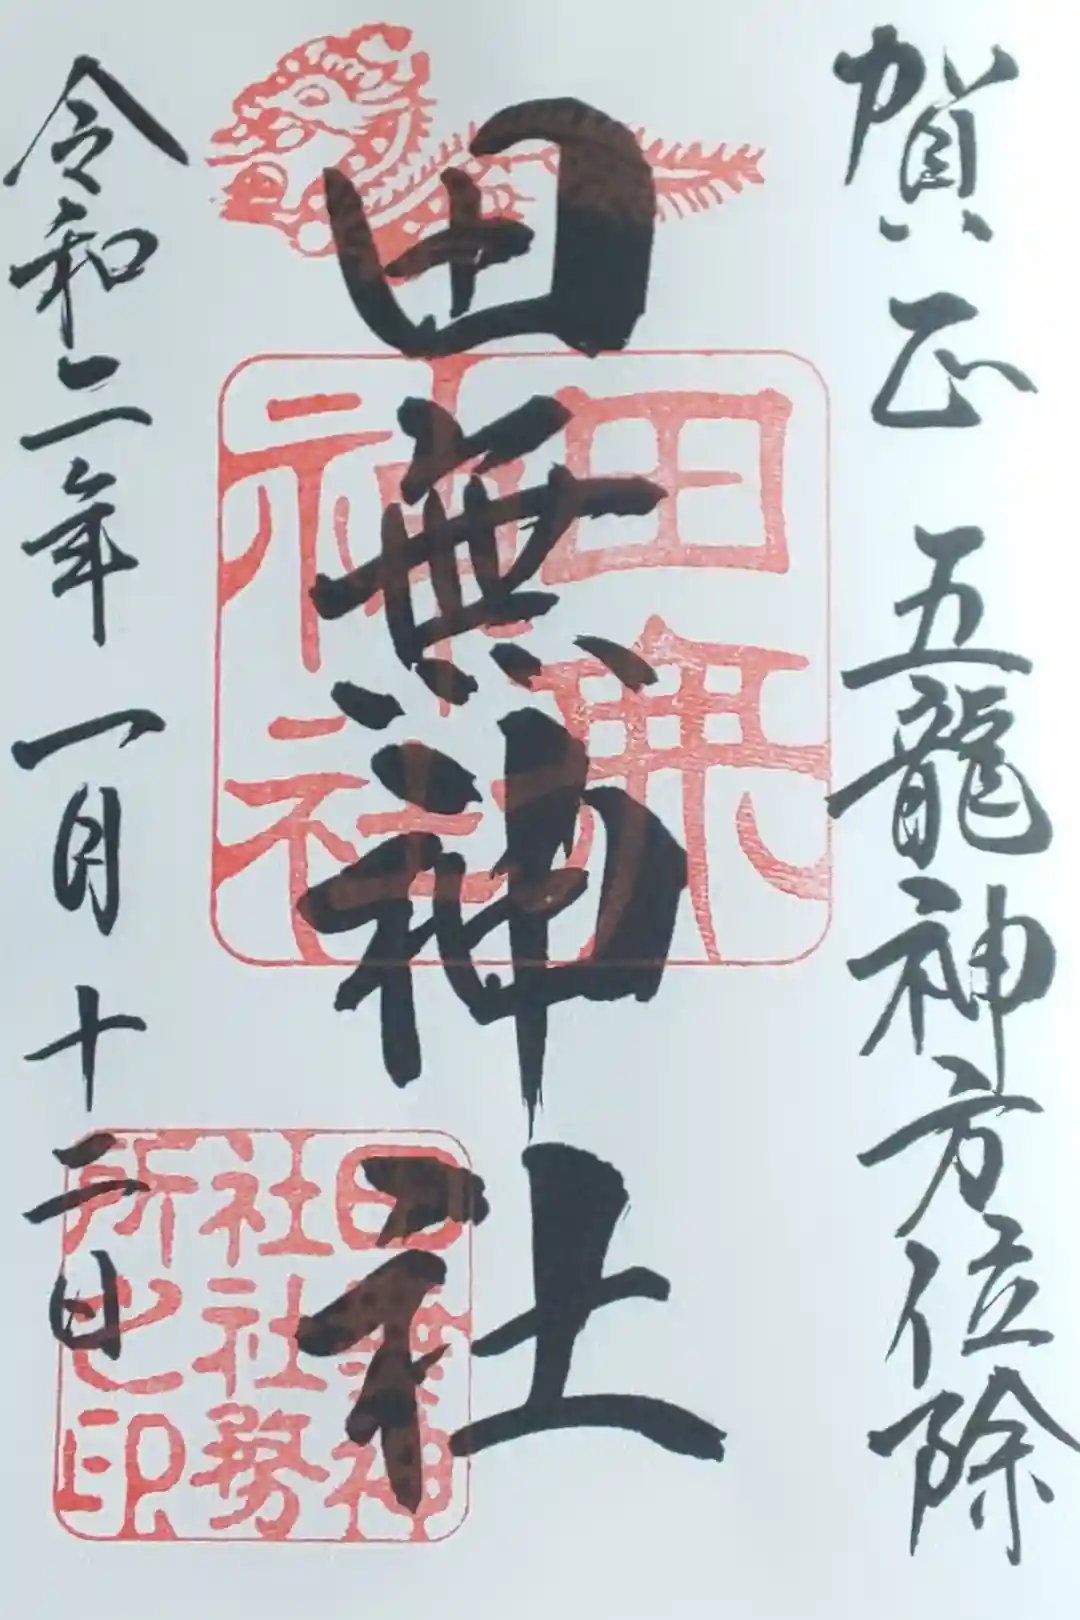 賀正 五龍神方位除
田無神社
令和二年 一月十二日
田無
神社
田無神
社社務
所之印